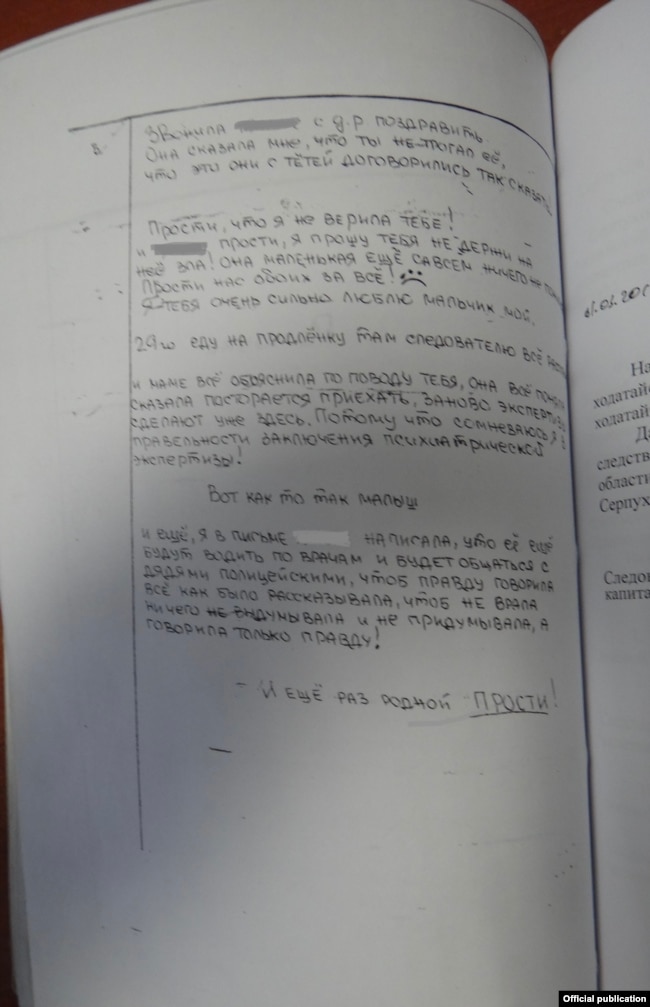 Звонила с д.р поздравить
Она сказала мне, что ты не трогал её,
что это они с тётей договорились так сказать
Прости, что я не верила тебе!
и прости, я прошу тебя не держи на
неё зла! Она маленькая ещё савсем ничего не
Прости нас обоих за всё!
Я тебя очень сильно люблю мальчик мой.
29го еду на продлёнку там следователю всё
и маме всё обяснила по поводу тебя, она всё
сказала посторается приехать, заново экспертизы
сделают уже здесь. Потому что сомневаюсь я в
правельности заключения психиатрической
экспертизы!
Вот как то так малыш
и ещё, я в письме написала, что её ещё
будут водить по врачам и будет общаться с
дядями полицейскими, чтоб правду говорила
всё как было рассказывала, чтоб не врала
ничего не выдумывала и не придумывала, а
говорила только правду!
- И ещё раз родной Прости!
На
ходатай
ходатай
Да
следств
области
Серпух
Следов
капита
Official publication